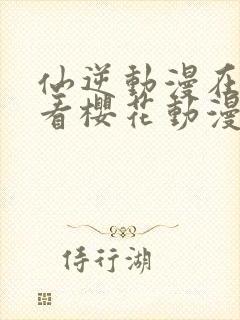 仙逆動漫在
看櫻花動漫
侍行湖